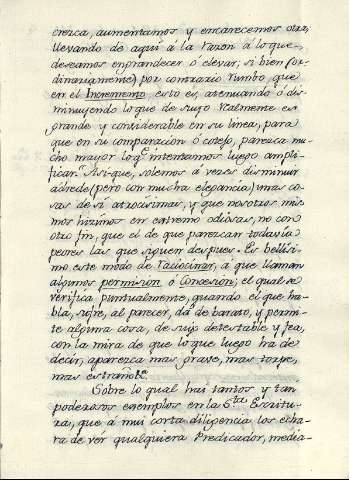 crezca, aumentamos y encarecemos otra,
llevando de aquí á la razon á lo que
deseamos engrandecer ó elevar; si bien (or-
dinariamente) por contrario rumbo, que
en el Incremento, esto es, atenuando ó dis-
minuyendo lo que de suyo realmente es
grande y considerable en su linea, para
que en su comparacion ó cotejo, parezca mu-
cho mayor lo q.e intentamos luego ampli-
ficar. Assi que, solemos á veces disminuir
adrede (pero con mucha elegancia) unas co-
sas de sí atrocisimas, y que nosotros mis-
mos hizimos en extremo odiosas, no con
otro fin, que el de que parezcan todavia
peores las que siguen despues. Es bellissi-
mo este modo de raciocinar, á que llaman
algunos permision ó Concesion; el qual se
verifica puntualmente, quando el que ha-
bla, sufre, al parecer, dá de barato, y permi-
te alguna cosa, de suyo detestable y fea,
con la mira de que lo que luego ha de
decir, aparezca mas grave, mas torpe,
mas estraneza.
Sobre lo qual hai tantos y tan
poderosos exemplos en la S.ta Escritu-
ra, que á mui corta diligencia los echa-
ra de vér qualquiera Predicador, media-